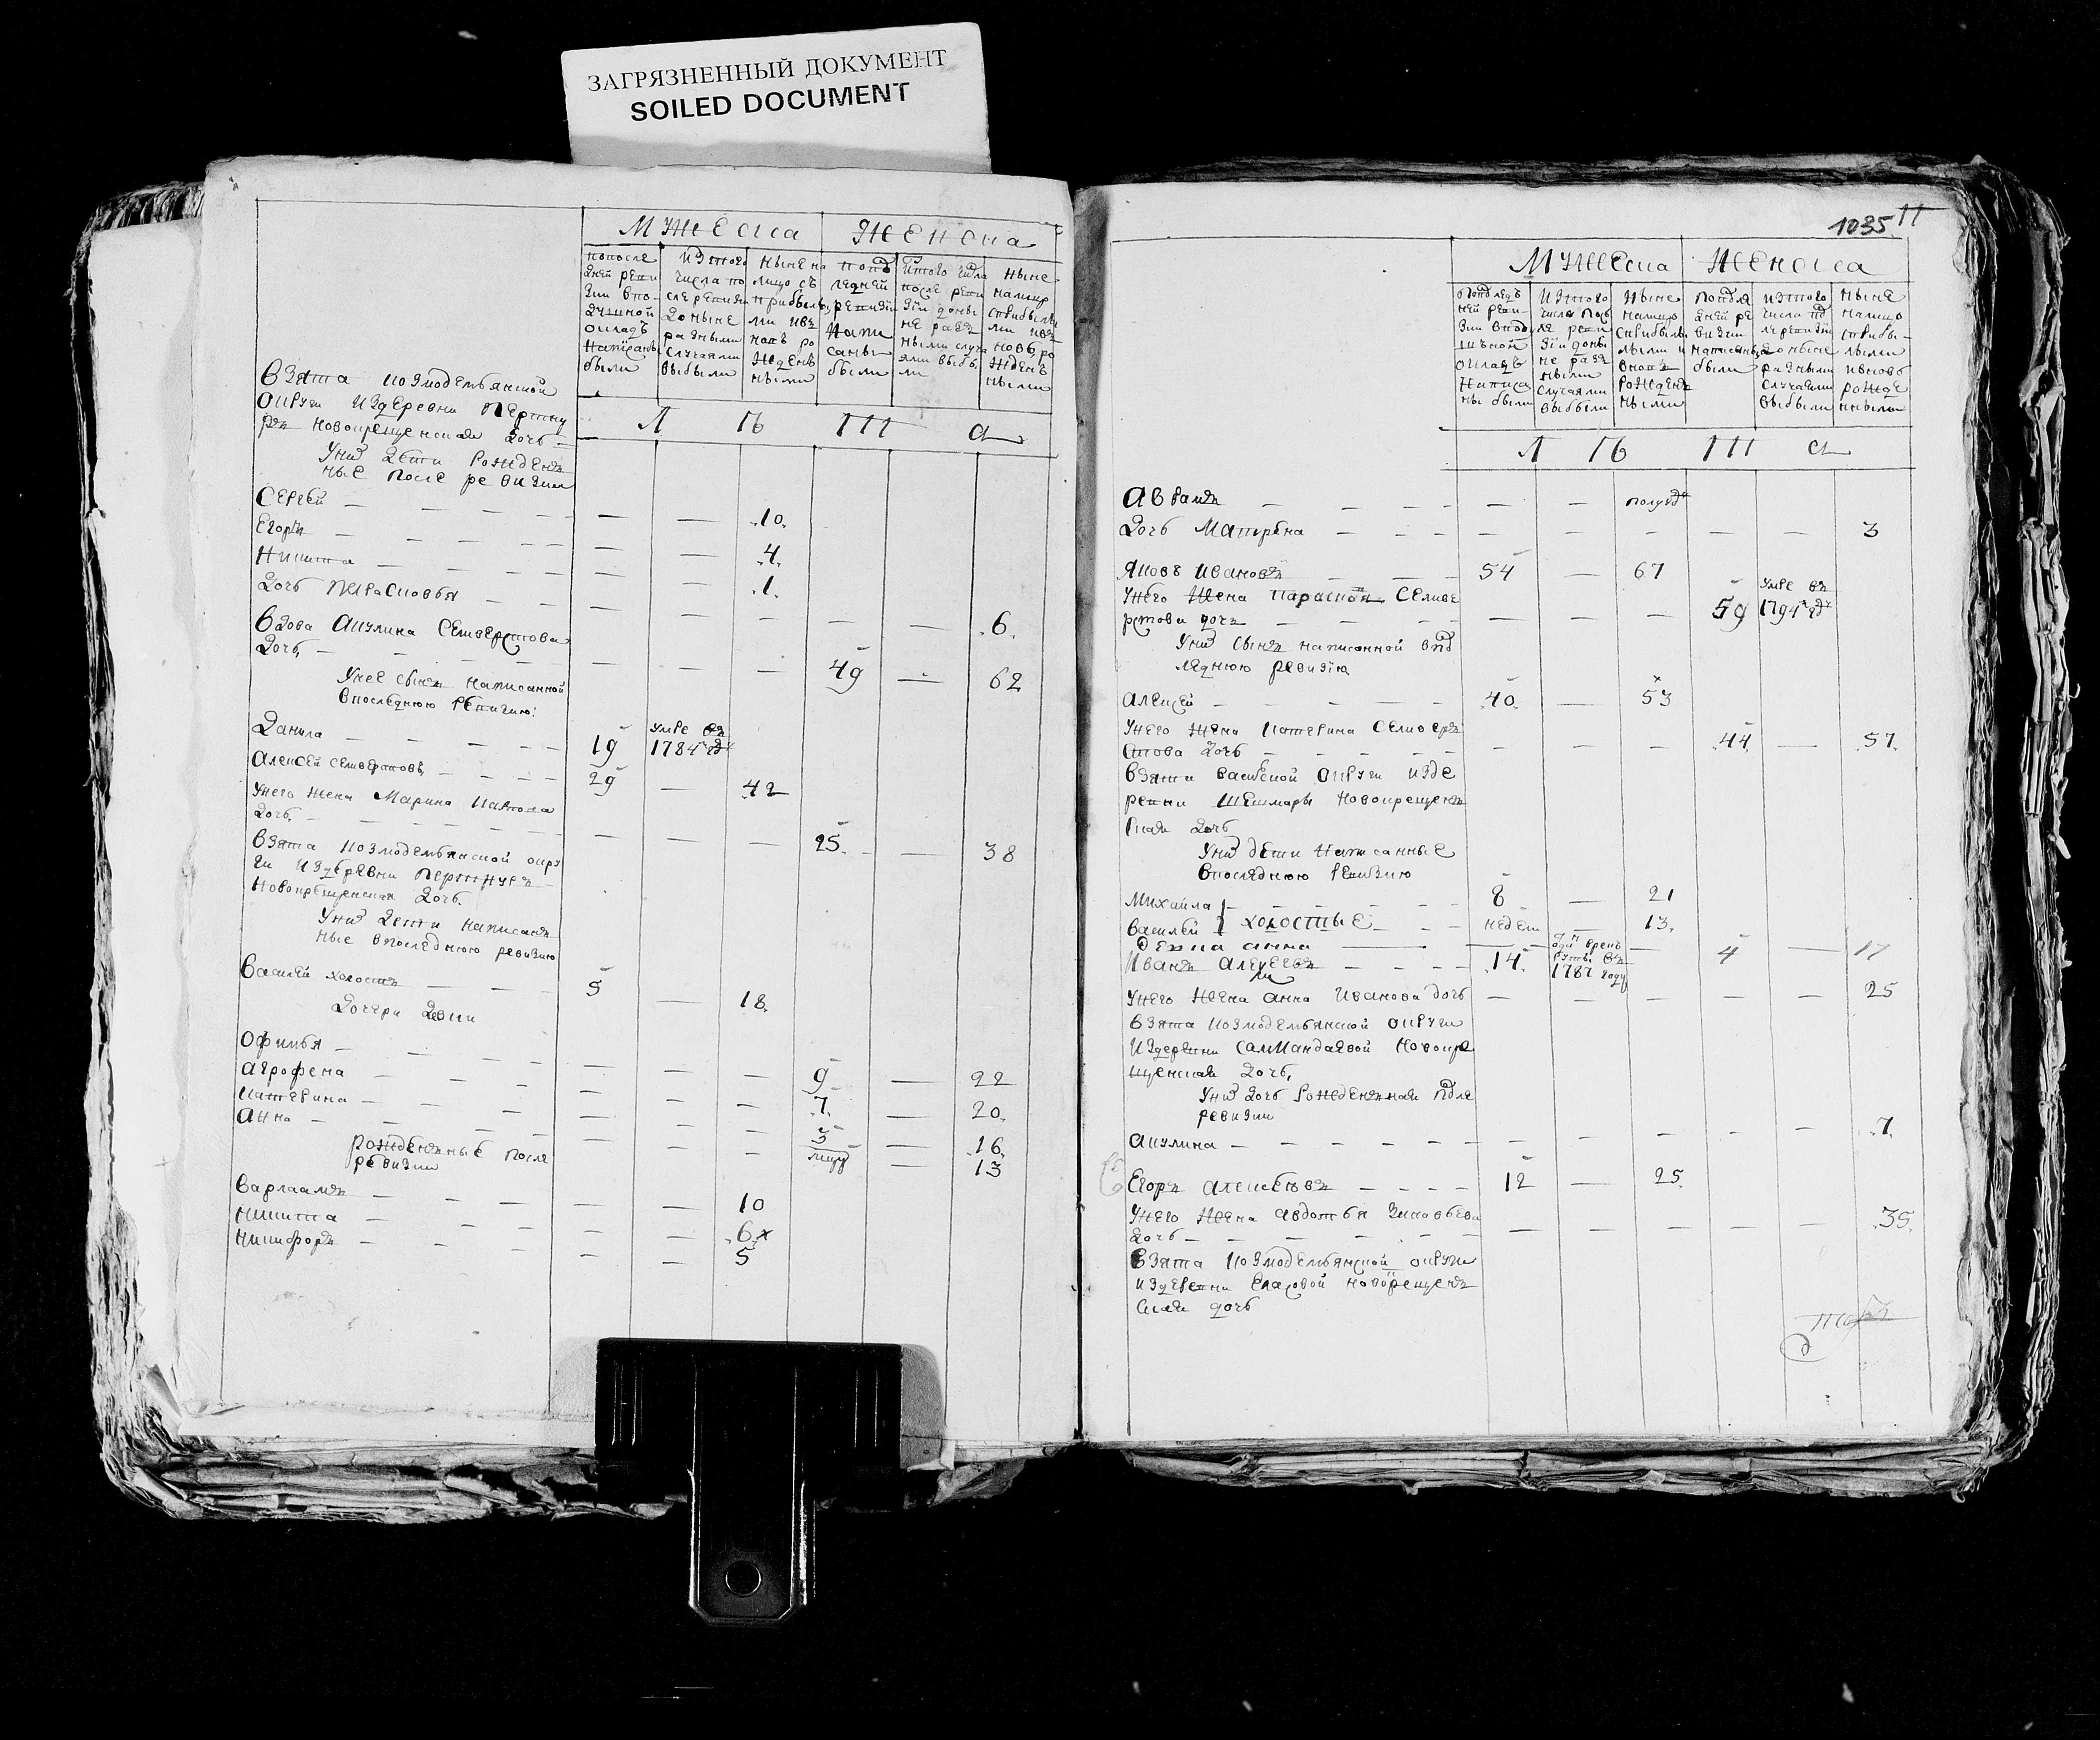 ЗАГРЯЗНЕННЫЙ ДОКУМЕНТ
SOILED DOCUMENT
Мужеска Женска
попоследней ревизии вподушной окладъ написаны были
изтого числа после ревизии доныне разными случаями выбыли
ныне налицо съ прибылыми ивновь рожденными
попоследней ревизии написаны были
изтого числа после ревизии доныне разными случаями выбыли
ныне налицо сприбылыми ивновь рожденными
Л ЛЬ ЛЛЛ а
взята козмодемьянской
округи издеревни пертнур
новокрещенская дочь
Унихъ дети рожден
ные после ревизии
Сергей — — — 10.
Егоръ — — — 4.
Никита — — — 1.
Дочь Парасковья — — — — — 6.
вдова Акулина Селиверстова
дочь — — — 49 — 62
Унее сынъ написанной
впоследнюю ревизию:
Данила — 19 умре въ 1784м году
Алексей Селиверстовъ — 29 — 42
Унего жена Марина Карпова
дочь — — — 25. — 38
взята козмодемьянской окру
ги издеревни пертнуръ
новокрещенская дочь.
Унихъ дети написан
ные впоследнюю ревизию
Василей холостъ — 5 — 18.
Дочери девки
Офимья — — — 9 — 22
Агрофена — — — 7. — 20.
Катерина — — — 3 — 16.
Анна — — — — 13
рожденные после
ревизии
Варлаамъ — — — 10
Никита — — — 6.х
Никифоръ — — — 5
1035 11
Мужеска Женска
попоследней ревизии вподушной окладъ написаны были
изтого числа после ревизии доныне разными случаями выбыли
ныне налицо сприбылыми и вновь рожденными
попоследней ревизии написаны были
изтого числа после ревизии доныне разными случаями выбыли
ныне налицо сприбылыми ивновь рожденными
Л ЛЬ ЛЛЛ а
Аврамъ — — — полугода
Дочь Матрена — — — — — 3
Яковъ Ивановъ — 54 — 67
Унего жена Парасковья Селиве
рстова дочь — — — 59 умре въ 1794м году
Унихъ сынъ написанной впос
леднюю ревизию
Алексей — 40. — 53
Унего жена Катерина Селивер
стова дочь — — — 44. — 57.
взята Васильской округи изде
ревни Шешмары новокрещен
ская дочь
Унихъ дети написанные
впоследнюю ревизию
Михайла 8 — 21
Василей } холостые недели 13.
Девка Анна — — — 4 — 17
Иванъ Алексеевъ — 14. отданъ врекруты въ 1787 году
Унего жена Анна Иванова дочь — — — — — 25
взята козмодемьянской округи
издеревни Самнандаевой новокре
щенская дочь,
Унихъ дочь рожденная после
ревизии
Акулина — — — — — — 7.
Егоръ Алексеевъ — 12 — 25.
Унего жена Авдотья Зиновьева
дочь — — — — — 35.
взята козмодемьянской округи
издеревни Еласовой новокрещен
ская дочь